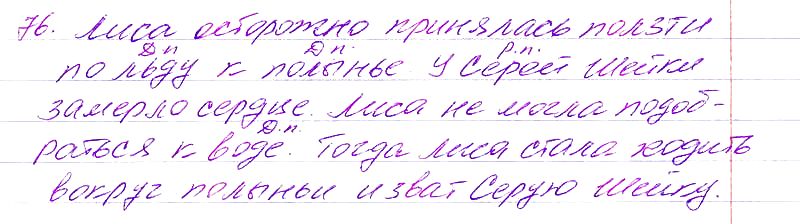 76. Лиса осторожно принялась ползти
Д п Д п. Р.п.
по льду к полынье. У Серей Шейки
замерло сердце. Лиса не могла подоб-
Д.п.
раться к воде. Тогда лиса стала ходить
вокруг полыньи и зват Серую Шейку.